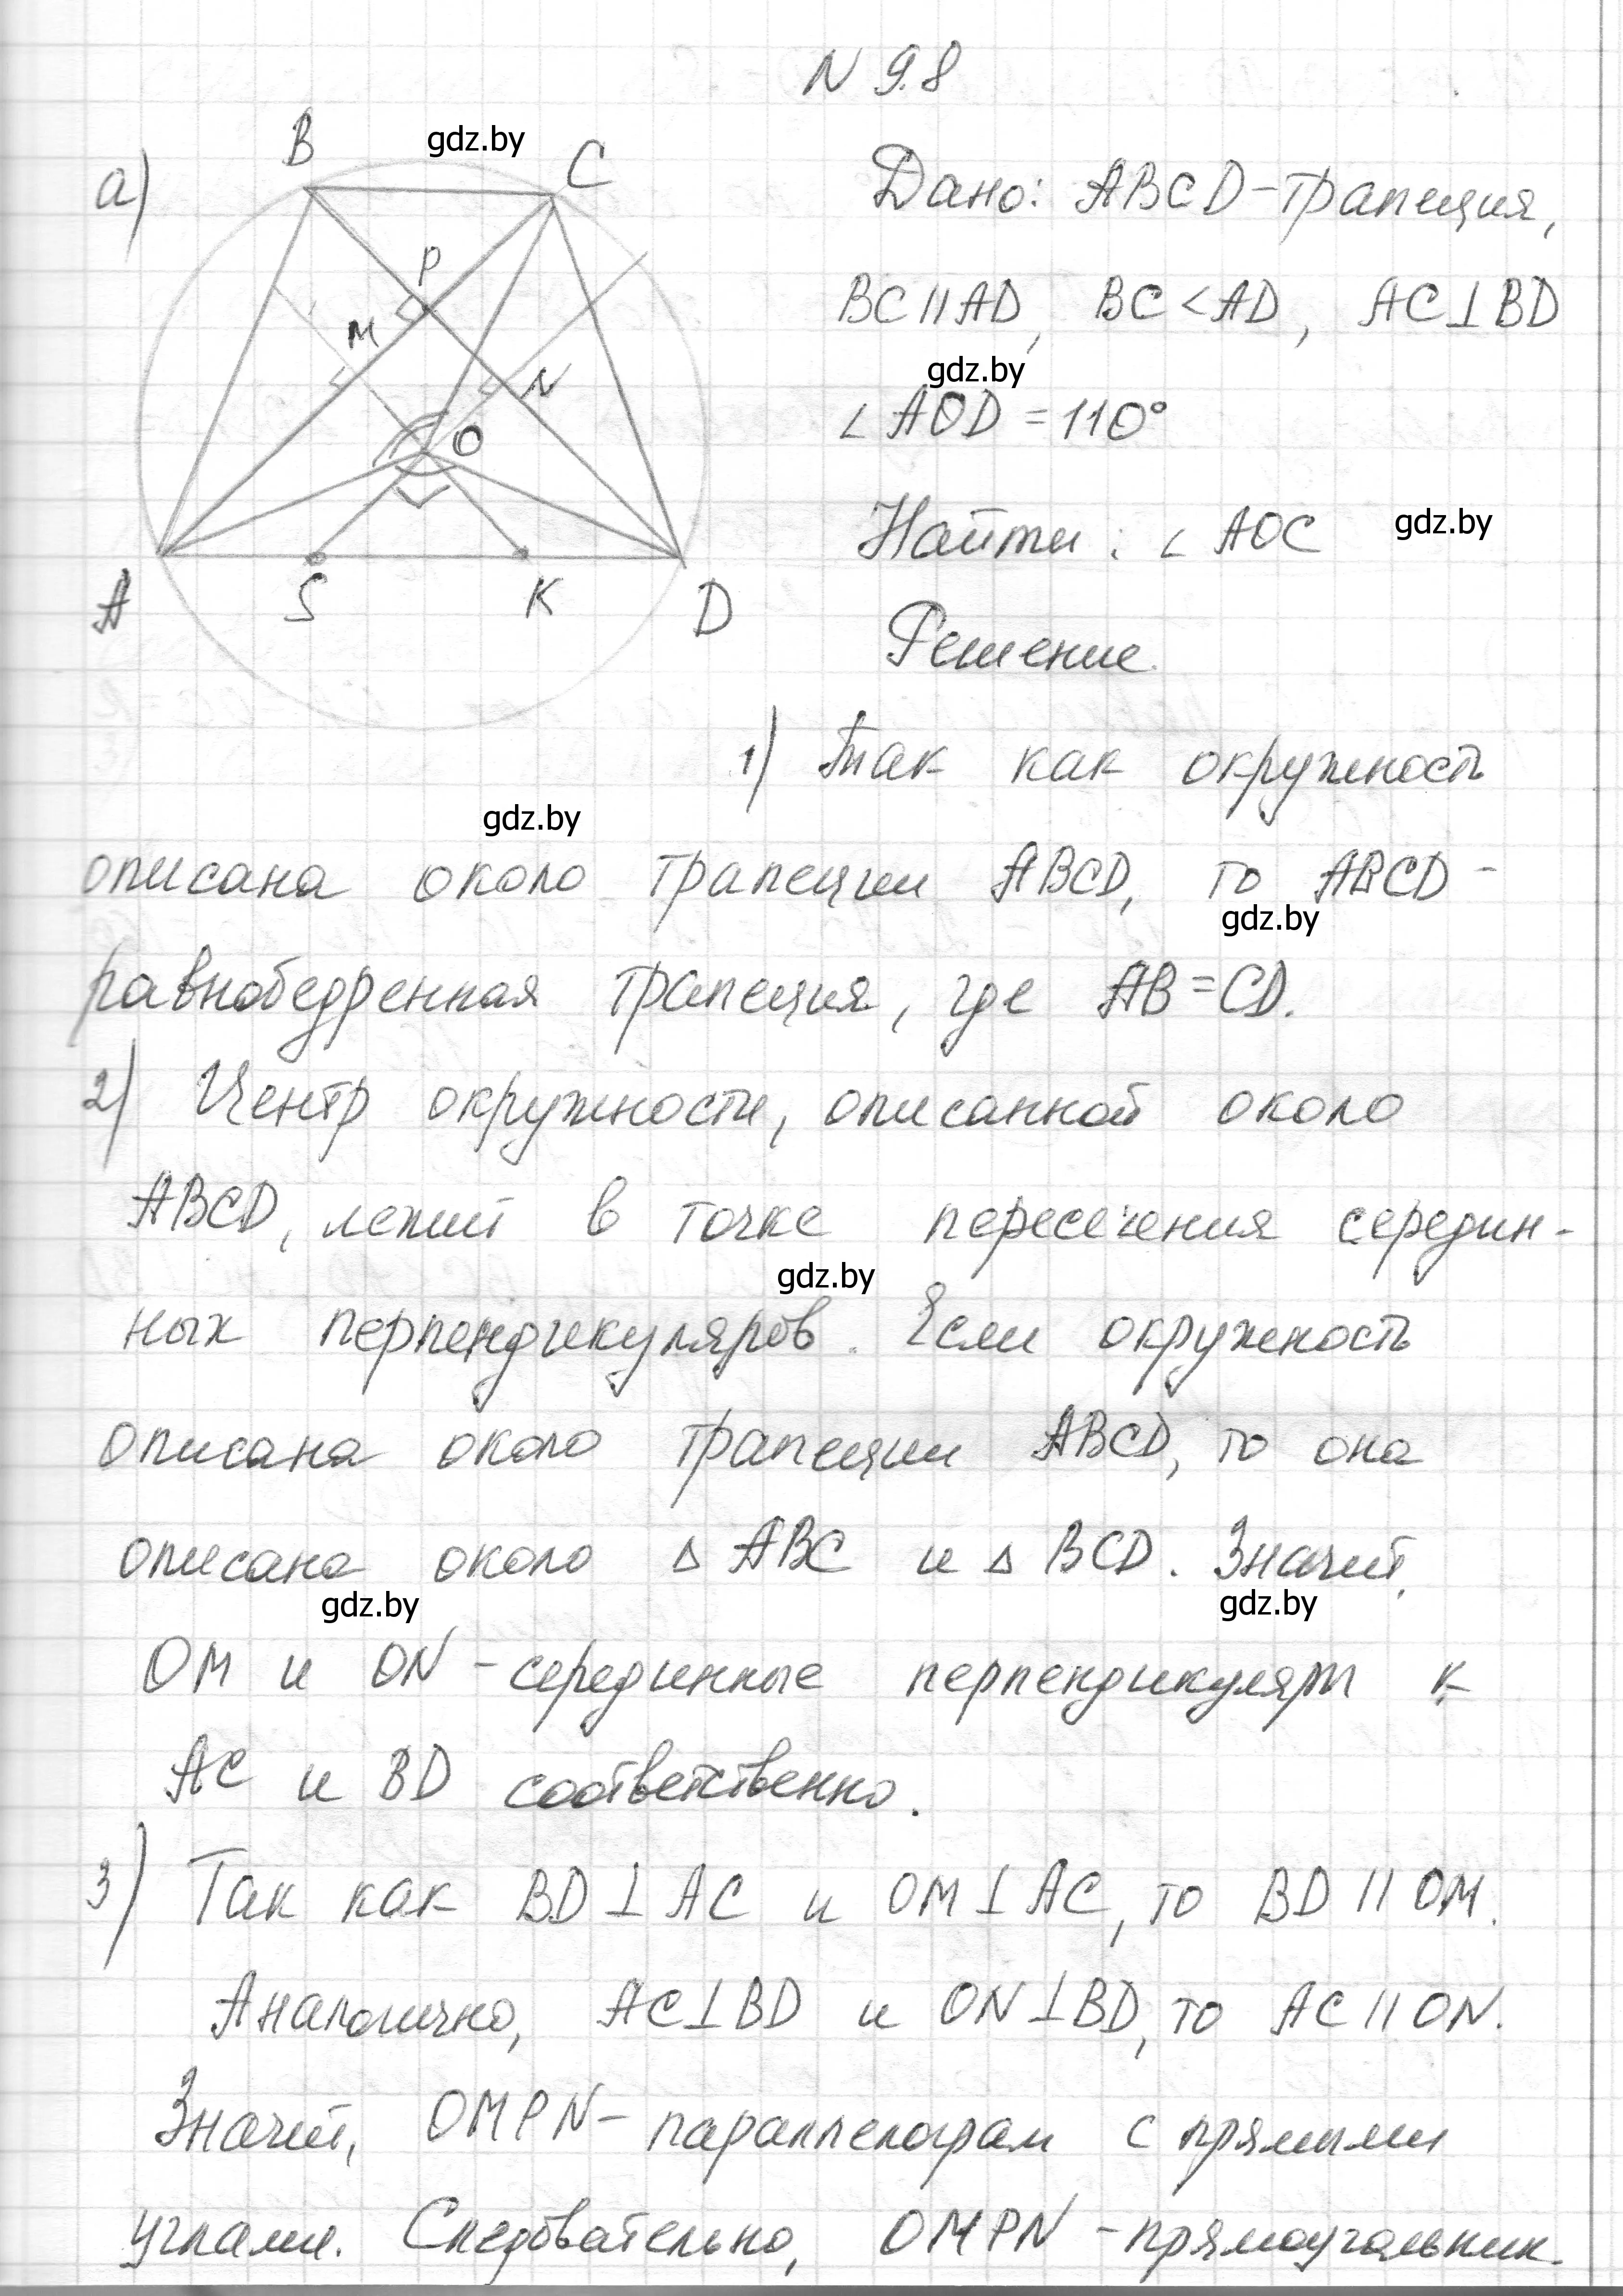 N 9.8
а)
B
gdz.by
C
P
M
N
O
A
S
K
D
Дано: ABCD - трапеция,
BC || AD, BC < AD, AC ⊥ BD
gdz.by
∠ AOD = 110°
Найти: ∠ AOC
gdz.by
Решение.
1) Так как окружность
gdz.by
описана около трапеции ABCD, то ABCD -
gdz.by
равнобедренная трапеция, где AB = CD.
2) Центр окружности, описанной около
ABCD, лежит в точке пересечения середин-
gdz.by
ных перпендикуляров. Если окружность
описана около трапеции ABCD, то она
описана около Δ ABC и Δ BCD. Значит,
gdz.by
gdz.by
OM и ON - серединные перпендикуляры к
AC и BD соответственно.
3) Так как BD ⊥ AC и OM ⊥ AC, то BD || OM.
Аналогично, AC ⊥ BD и ON ⊥ BD, то AC || ON.
Значит, OMPN - параллелограм с прямыми
углами. Следовательно, OMPN - прямоугольник.